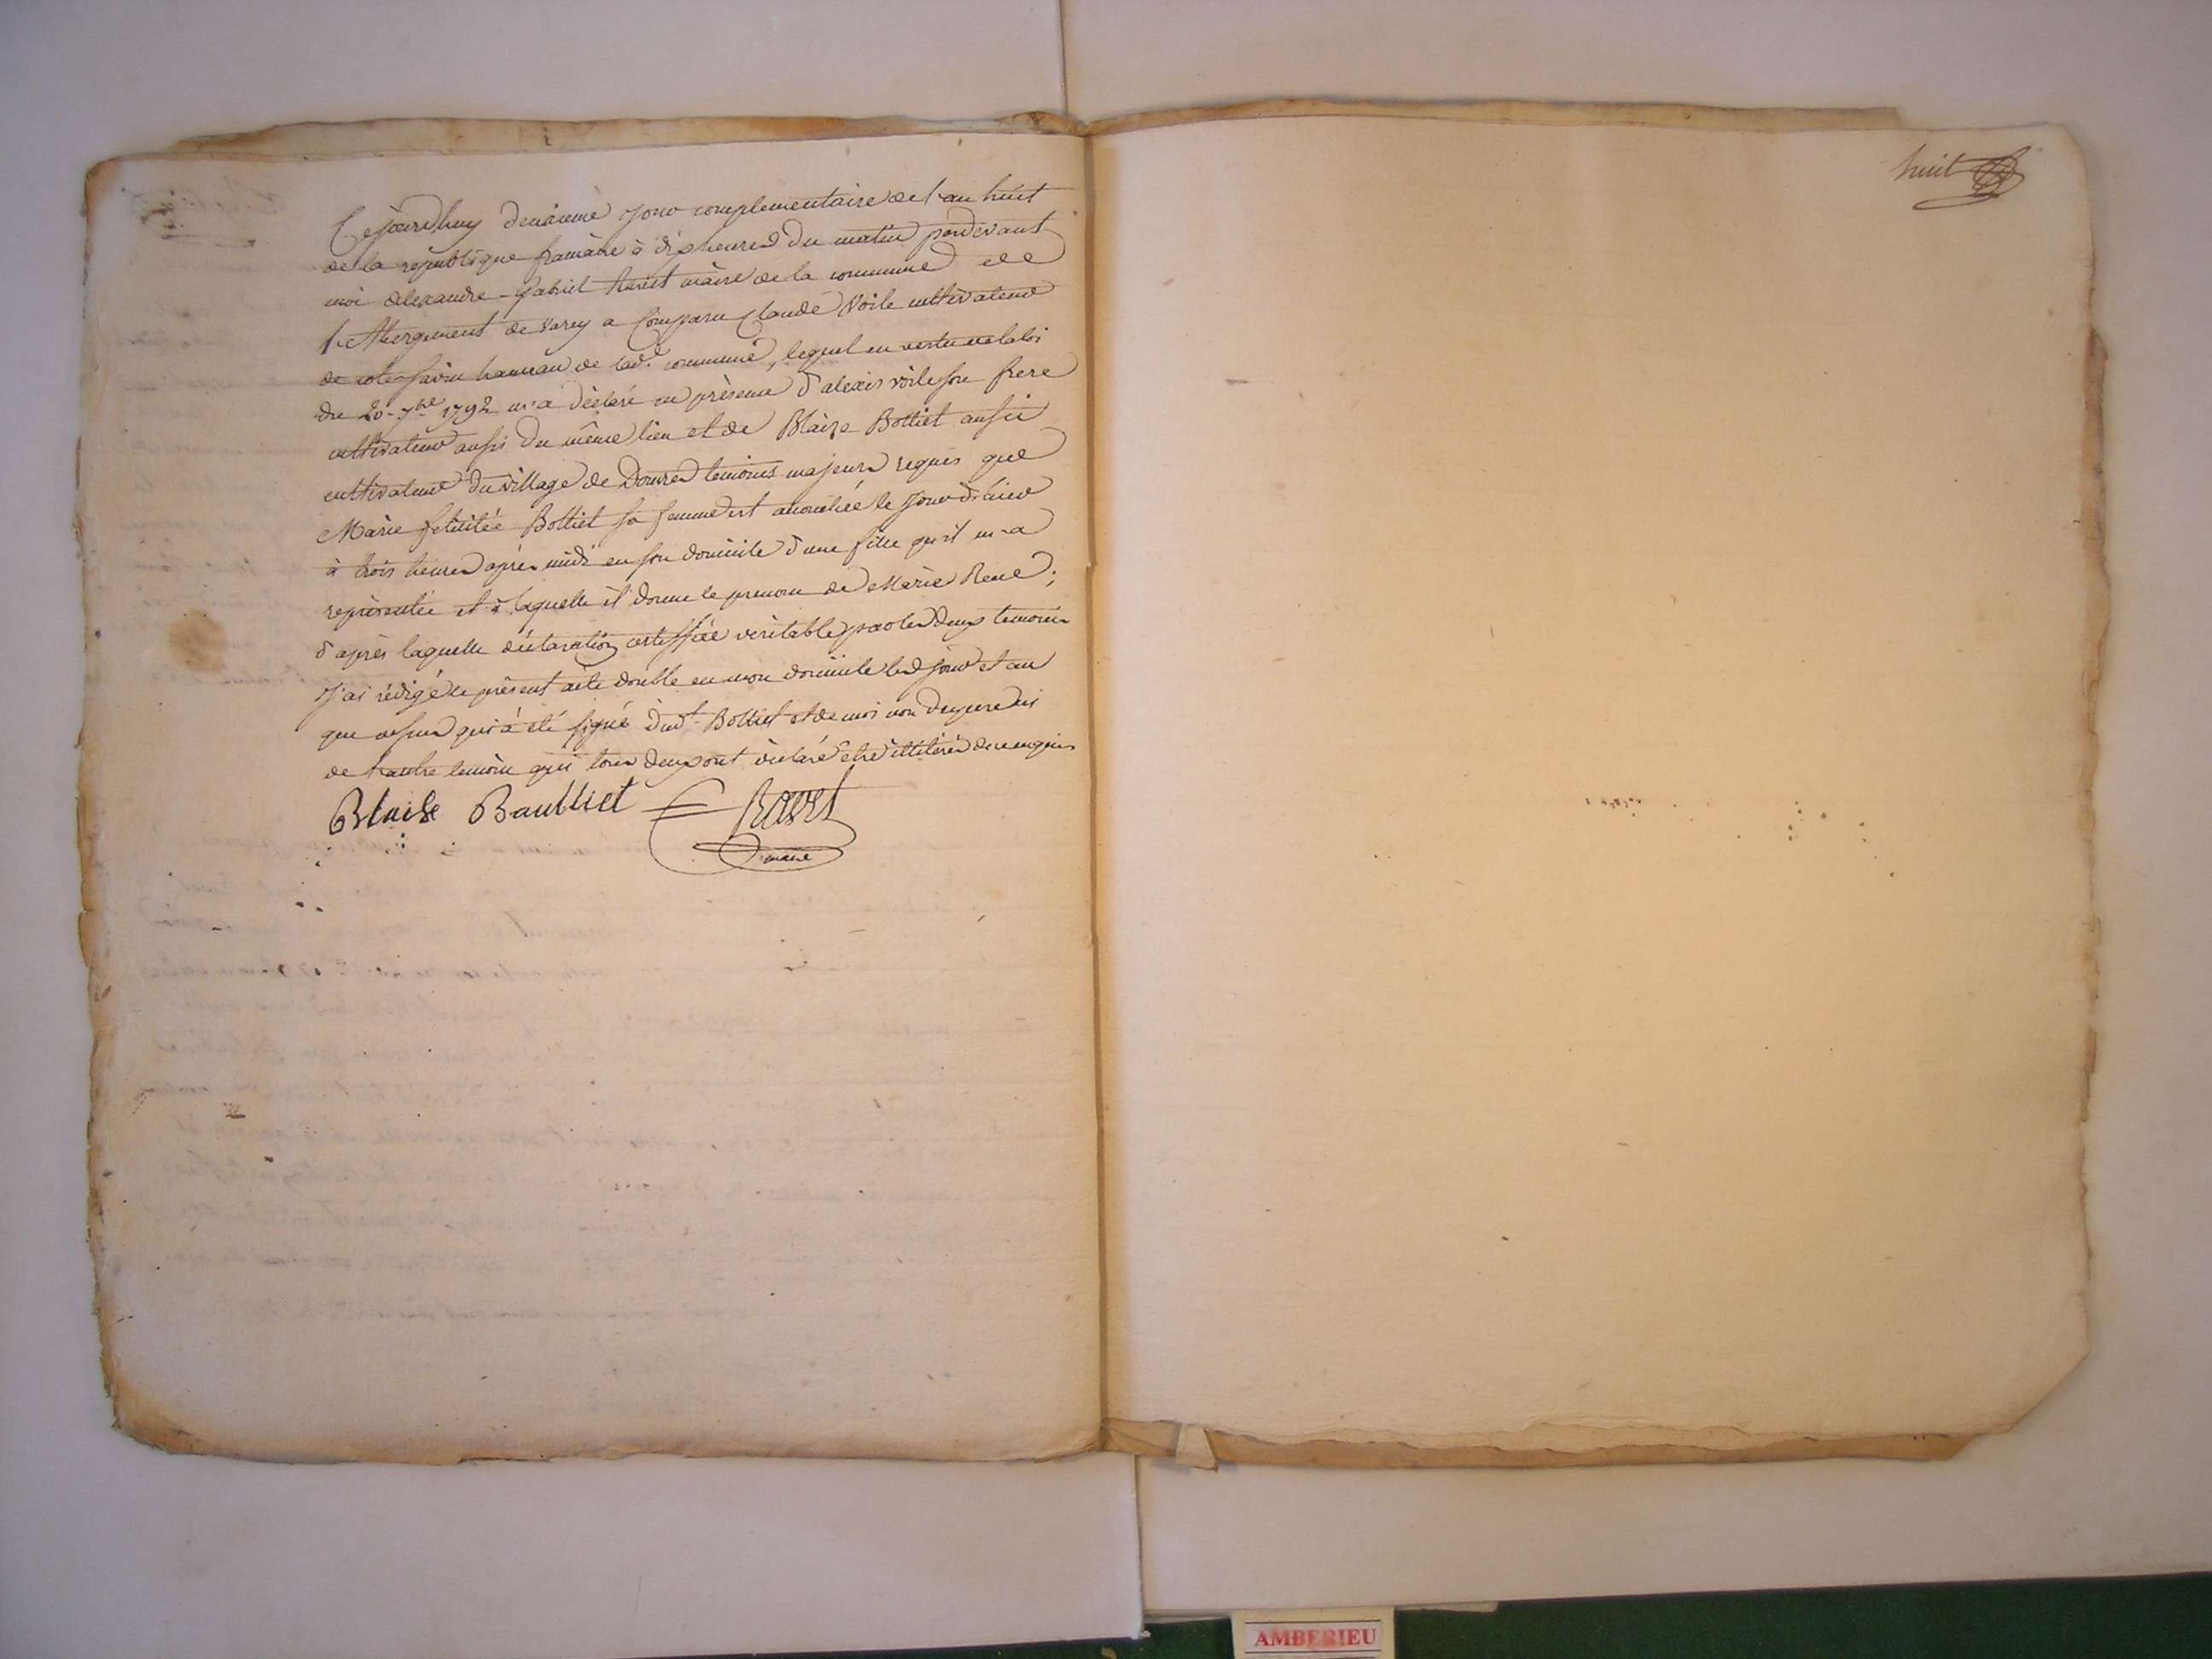 Cejourdhuy deuxieme jour complementaire de l'an huit
de la république francaise à dix heures du matin pardevant
moi alexandre-gabriel maire de la commune de
l'Abergement de Varey a Comparu Claude Voile cultivateur
de cote-savin hameau de lad.e commune, lequel en vertu de la loi
du 20-7bre 1792 m'a déclaré en présence d'alexis voile son frere
cultivateur aussi du même lieu et de Blaize Bolliet aussi
cultivateur du village de Douvres temoins majeurs requis que
Marie felicitée Bolliet sa femme est accouchée le jour d'hier
à trois heures après midi en son domicile d'une fille qu'il m'a
représentée et à laquelle il donne le prenom de Marie Rene;
d'après laquelle déclaration certiffiée veritable par les deux temoins
j'ai rédigé le présent acte double en mon domicile lesd jour et an
que dessus qui à été signé dud.t Bolliet et de moi non du pere ni
de l'autre temoin qui tous deux ont déclaré être illitérés de ce enquis
Blaise Baulliet
maire
huit
AMBERIEU